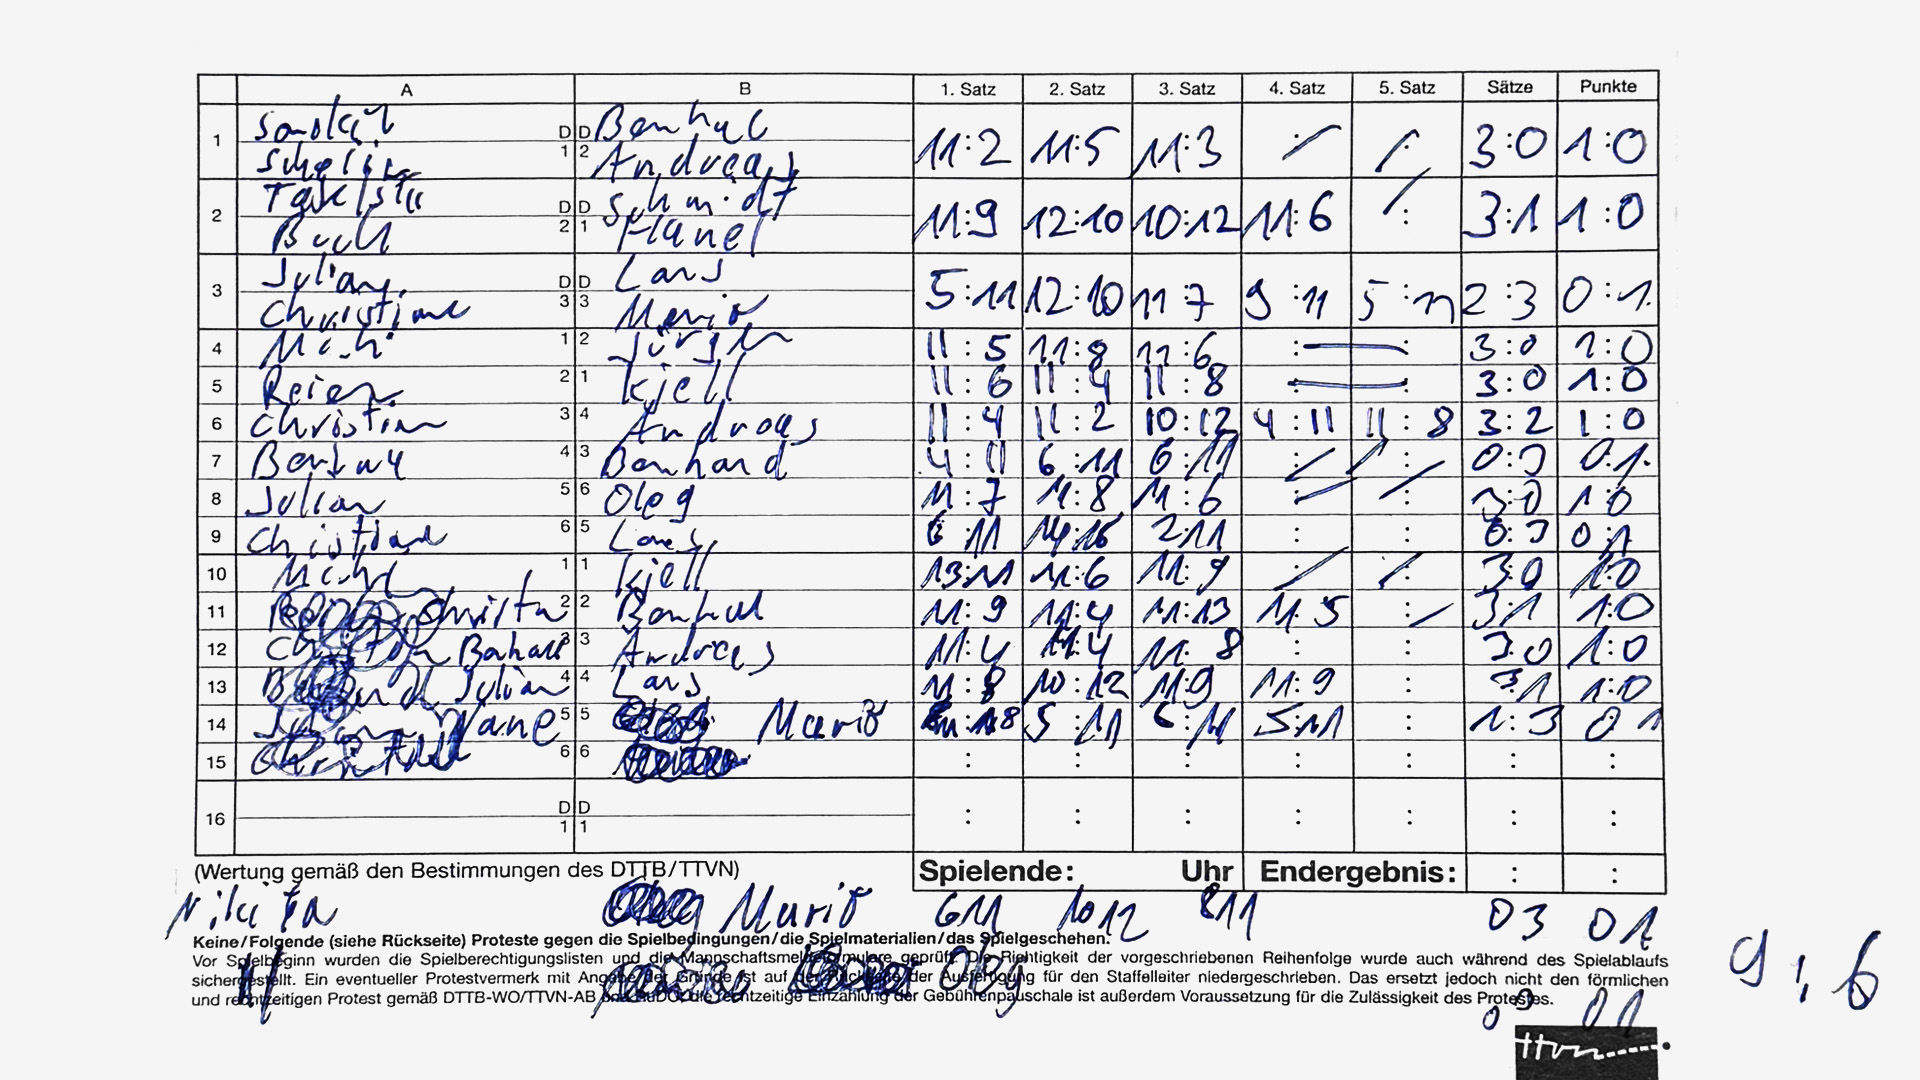 A B 1. Satz 2. Satz 3. Satz 4. Satz 5. Satz Sätze Punkte
1 D D Bernhard 11:2 11:5 11:3 : : 3:0 1:0
1 2 Andreas
2 D D Schmidt 11:9 12:10 10:12 11:6 : 3:1 1:0
Buch 2 1 Hanel
3 Julian D D Lars 5:11 12:10 11:7 9:11 5:11 2:3 0:1
Christian 3 3 Mario
4 Michi 1 2 Jürgen 11:5 11:8 11:6 : : 3:0 1:0
5 2 1 Kjell 11:6 11:4 11:8 : : 3:0 1:0
6 Christian 3 4 Andreas 11:4 11:2 10:12 4:11 11:8 3:2 1:0
7 4 3 Bernhard 4:11 6:11 6:11 : : 0:3 0:1
8 Julian 5 6 Oleg 11:7 11:8 11:6 : : 3:0 1:0
9 Christian 6 5 Lars 6:11 14:16 2:11 : : 0:3 0:1
10 Michi 1 1 Kjell 13:11 11:6 11:9 : : 3:0 1:0
11 2 2 Bernhard 11:9 11:4 11:13 11:5 : 3:1 1:0
12 3 3 Andreas 11:4 11:4 11:8 : : 3:0 1:0
13 Julian 4 4 Lars 11:8 10:12 11:9 11:9 : 3:1 1:0
14 5 5 Mario 5:11 6:11 5:11 : 1:3 0 1
15 6 6 : : : : : : :
16 D D : : : : : : :
1 1
(Wertung gemäß den Bestimmungen des DTTB/TTVN) Spielende: Uhr Endergebnis: : :
Nikita Mario 6 11 10 12 8 11 0 3 0 1
Keine/Folgende (siehe Rückseite) Proteste gegen die Spielbedingungen/die Spielmaterialien/das Spielgeschehen.
Vor Spielbeginn wurden die Spielberechtigungslisten und die Mannschaftsmeldeformulare geprüft. Die Richtigkeit der vorgeschriebenen Reihenfolge wurde auch während des Spielablaufs
sichergestellt. Ein eventueller Protestvermerk mit Angabe der Gründe ist auf der Rückseite der Ausfertigung für den Staffelleiter niedergeschrieben. Das ersetzt jedoch nicht den förmlichen
und rechtzeitigen Protest gemäß DTTB-WO/TTVN-AB die rechtzeitige Einzahlung der Gebührenpauschale ist außerdem Voraussetzung für die Zulässigkeit des Protestes.
Oleg 0 3 0 1
9:6
ttvn